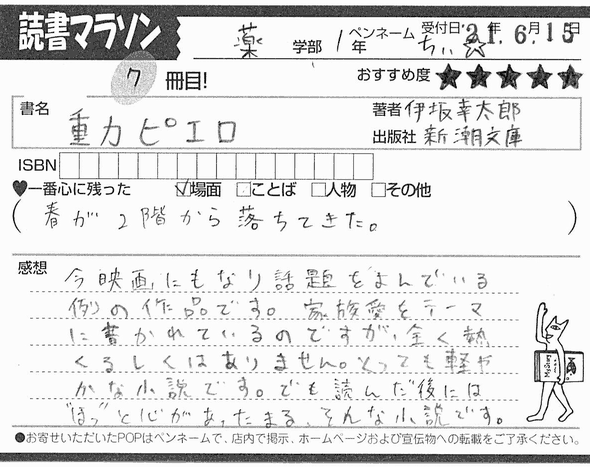 読書マラソン
薬 学部 1年 ペンネーム ちぃ☆ 受付日 21年 6月 15日
7 冊目!
おすすめ度 ★★★★★
書名 重力ピエロ
著者 伊坂幸太郎
出版社 新潮文庫
ISBN
♥一番心に残った ☑場面 □ことば □人物 □その他
(春が2階から落ちてきた。)
感想
今映画にもなり話題をよんでいる
例の作品です。家族愛をテーマ
に書かれているのですが、全く熱
くるしくはありません。とっても軽や
かな小説です。でも読んだ後には
"ほっ"と心があったまる、そんな小説です。
●お寄せいただいたPOPはペンネームで、店内で掲示、ホームページおよび宣伝物への転載をご了承ください。